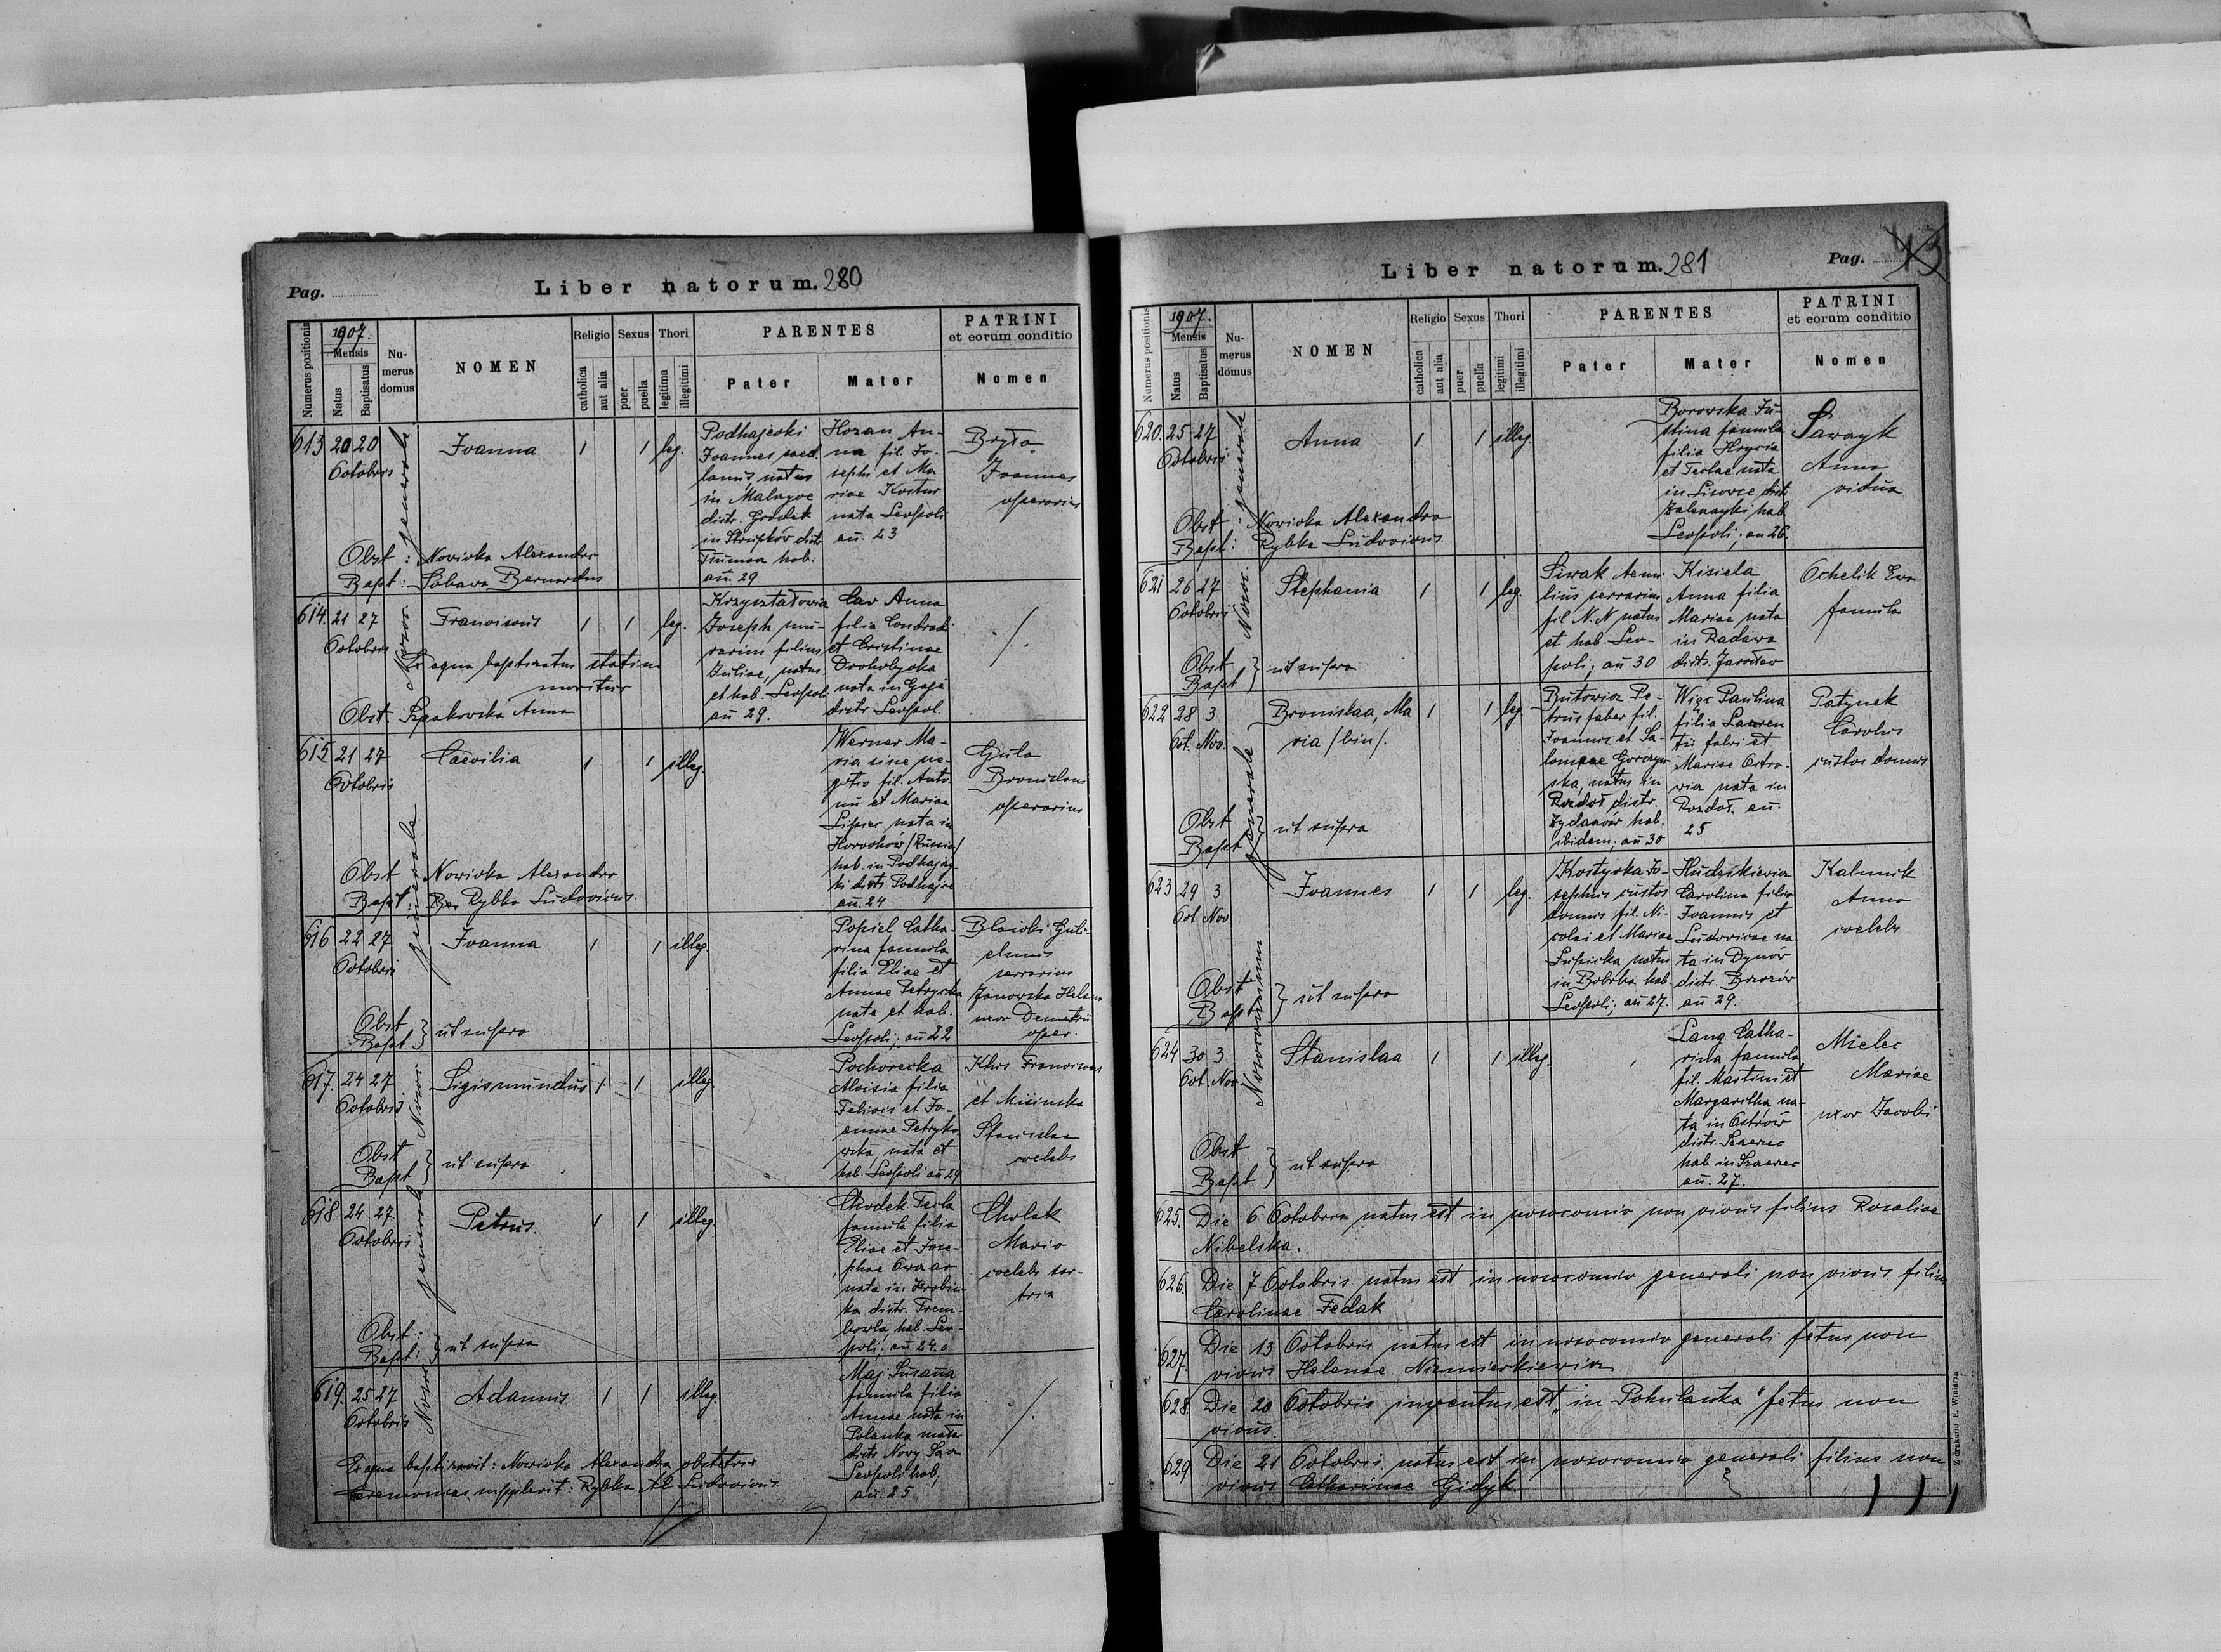 Pag.
Liber natorum. 280
Numerus positionis
1907.
Mensis
Natus
Baptisatus
Nu-
merus
domus
NOMEN
Religio
catholica
aut alia
Sexus
puer
puella
Thori
legitima
illegitimi
PARENTES
Pater
Mater
PATRINI
et eorum conditio
Nomen
Nosoc. generale
613 20 20
Octobris
Joanna
1 1 leg.
Podhajecki
Joannes
natus
in
distr. Grodek
distr.
hab.
an. 29
Hozan An-
na fil. Jo-
sephi et Ma
riae Kostur
nata Leopoli
an. 23
Bryła
Joannes
operarius
Obst: Nowicka Alexandra
Bapt: Bernardus
614. 21 27
Octobris
Franciscus
1 1 leg.
Ex aqua baptisatus statim
moritur
Joseph mu-
rarius filius
Juliae, natus
et hab. Leopoli
an 29.
Anna
filia Conradi
et Cristinae
Drohobycka
nata in Gaje
distr Leopol.
Obst. Szpakowska Anna
615 21 27
Octobris
Caecilia
1 1 illeg.
Werner Ma-
ria sine ne-
gotio fil. Anto-
nii et Mariae
Lipiec nata in
/Russia/
hab. in Podhajczy-
ki distr Podhajce
an. 24
Gula
Bronislaus
operarius
Obst Nowicka Alexandra
Bapt: Rybka Ludovicus.
616 22 27
Octobris
Joanna
1 1 illeg.
Popiel Catha-
rina famula
filia Eliae et
Annae Petrycka
nata et hab.
Leopoli; an 22
Guli-
elmus
serrarius
Janowska Helena
uxor Demetrii
oper.
Obst
Bapt } ut supra
617. 24 27
Octobris
Sigismundus
1 1 illeg.
Pochorecka
Aloisia filia
Felicis et Jo-
annae Petryko
wska, nata et
hab. Leopoli an 29
Franciscus
et
coelebs
Obst
Bapt } ut supra
618 24 27
Octobris
Petrus.
1 1 illeg.
Chodek Tecla
famula filia
Eliae et Jose-
phae
nata in
distr. Trem-
bowla, hab. Leo-
poli; an 24.
Cholak
Maria
coelebs sar-
trix
Obst:
Bapt: } ut supra
619. 25 27
Octobris
Adamus
1 1 illeg.
Maj Susana
famula filia
Annae nata in
Polanka
distr Nowy Sącz
Leopoli hab;
an. 25
Ex aqua baptisavit: Nowicka Alexandra obstetrix
Ceremonias supplevit: Rybka Ludovicus.
Liber natorum. 281
Pag.
Numerus positionis
1907.
Mensis
Natus
Baptisatus
Nu-
merus
domus
NOMEN
Religio
catholica
aut alia
Sexus
puer
puella
Thori
legitimi
illegitimi
PARENTES
Pater
Mater
PATRINI
et eorum conditio
Nomen
620. 25 27
Octobris
Anna
1 1 illeg.
Borowska Ju-
stina famula
filia
et Teclae nata
in Lisowce distr
Zaleszczyki hab.
Leopoli; an 26.
Anna
vidua
Obst: Nowicka Alexandra
Bapt: Rybka Ludovicus
621 26 27
Octobris
Stephania
1 1 leg.
Siwak Aemi-
lius serrarius
fil N.N natus
et hab. Leo-
poli; an 30
Kisiela
Anna filia
Mariae nata
in Radawa
distr. Jarosław
Ochelik Ewa
famula
Obst
Bapt } ut supra
622 28 3
Oct. Nov.
Bronislaa, Ma
ria /bin/.
1 1 leg.
Butowicz Pe-
trus faber fil.
Joannis et Sa-
lomeae Gorczyn-
ska, natus in
Rozdoł distr.
Żydaczów hab.
ibidem; an 30
Paulina
filia Lauren
tii fabri et
Mariae Ostro-
wicz nata in
Rozdoł. an.
25
Patynek
Carolus
custos domus
Obst
Bapt } ut supra
623 29 3
Oct Nov
Joannes
1 1 leg.
Kostycka Jo-
sephus custos
domus fil. Ni-
colai et Mariae
natus
in Bobrka hab.
Leopoli; an 27.
Hudzikiewicz
Carolina filia
Joannis et
Ludovicae na
ta in Dynów
distr. Brzozów
an 29.
Kalmuk
Anna
coelebs
Obst
Bapt } ut supra
624 30 3
Oct. Nov
Stanislaa
1 1 illeg.
Lang Catha-
rina famula
fil. Martini et
Margaritha, na-
ta in Ostrów
distr. Szczerzec
hab in Szczerzec
an. 27.
Mielec
Mariae
uxor Jacobi
Obst
Bapt } ut supra
625. Die 6 Octobris natus est in nosocomio non vivus filius Rosaliae
Nibelska.
626. Die 7 Octobris natus est in nosocomio generali non vivus filius
Carolinae Fedak
627 Die 13 Octobris natus est in nosocomio generali fetus non
vivus Helenae Niemierkiewicz
628. Die 20 Octobris inventus est „in Pohulanka" fetus non
vivus.
629 Die 21 Octobris natus est in nosocomio generali filius non
vivus Catharinae Gidyk.
Z drukarni E. Winiarza